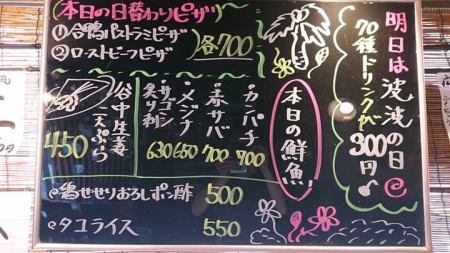 明日は波波の日
70種ドリンクが
300円
本日の日替わりピザ
①合鴨パストラミピザ
②ローストビーフピザ
各700
本日の鮮魚!
カンパチ 700
赤サバ 700
メジナ 650
サゴシ炙り刺 630
谷中生姜天ぷら
450
鶏せせりおろしポン酢 500
タコライス 550